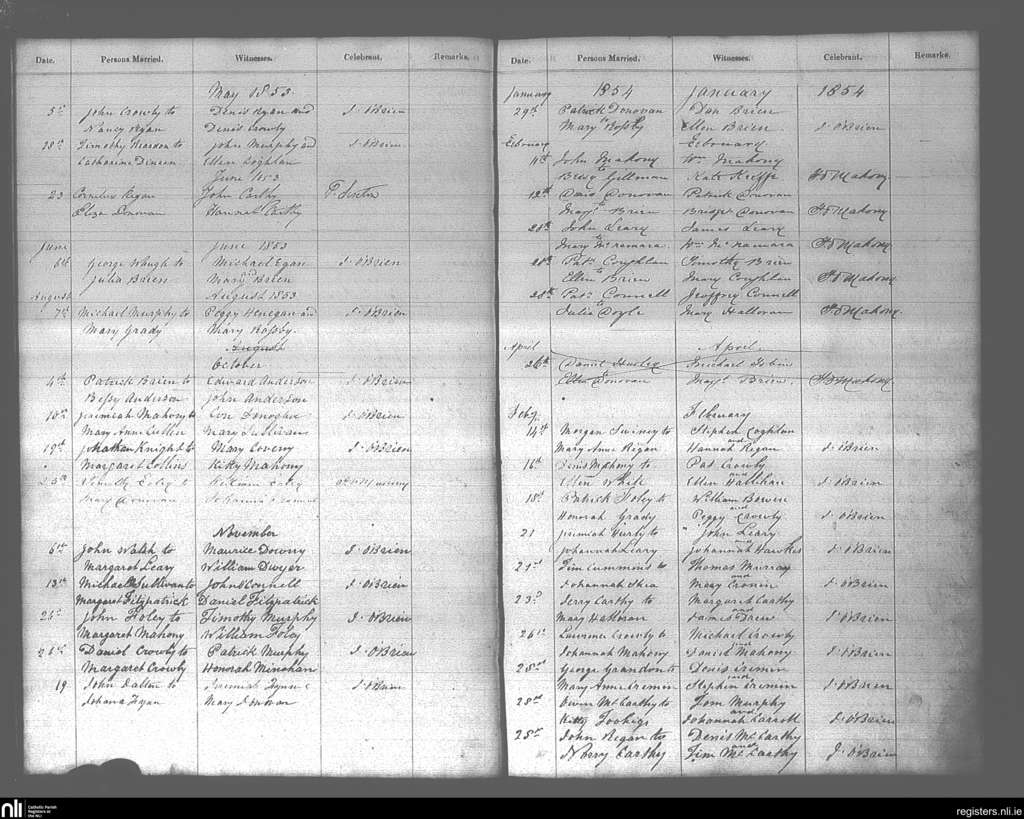 Date. Persons Married. Witnesses. Celebrant. Remarks.
May 1853.
5th John Crowly to Denis Regan and J. OBrien
Nancy Regan Denis Crowly
28th Timothy Reardon to John Murphy and J. OBrien
Catharine Dineen Ellen Coghlan
June 1853
23 Cornelius Regan John Carthy
Eliza Donovan Hannah Carthy
June June 1853
6th George Waugh to Michael Egan J. OBrien
Julia Brien Mary Brien
August August 1853
7th Michael Murphy to Peggy Henegan and J. OBrien
Mary Grady Mary Roßby.
August
October
4th Patrick Brien to Edward Anderson J. OBrien
Beßy Anderson John Anderson
10th Jeremiah Mahony to Con Donoghue J. OBrien
Mary Anne Mary Sullivan
19th Jonathan Knight to Mary Coveny J. OBrien
Margaret Collins Kitty Mahony
25th Timothy to William
Mary Donovan Johanna
November
6th John Walsh to Maurice Downy J. OBrien
Margaret Leary William Dwyer
13th Michael Sullivan to John OConnell J. OBrien
Margaret Fitzpatrick Daniel Fitzpatrick
26th John Foley to Timothy Murphy J. OBrien
Margaret Mahony William Foley
Daniel Crowly to Patrick Murphy J. OBrien
Margaret Crowly Honorah Minehan
19 John Dalton to Jeremiah Flynn J. OBrien
Johana Mary Donovan
Date. Persons Married. Witnesses. Celebrant. Remarks.
January 1854 January 1854
29th Patrick Donovan Dan Brien
Mary Roßby Ellen Brien. J. OBrien
February February
11th John Mahony Wm Mahony
Gillman Kate Mahony
12th David Donovan Patrick Donovan
Margt Brien Bridget Donovan Mahony
28th John Leary James Leary
Mary McNamara Wm McNamara Mahony
28th Pat Coghlan Timothy Brien
Ellen Brien Mary Coghlan Mahony
28th Pat Connell Jeoffrey Connell
Julia Doyle Mary Halloran Mahony
April April.
26th Daniel Michael Tobin
Ellen Donovan Margt Brien Mahony
Feby. February
14th Morgan Swiney to Stephen Coghlan and
Mary Anne Regan Hannah Regan J. OBrien
16th Denis Mahony to Pat Crowly and
Ellen White Ellen J. OBrien
18th Patrick Foley to William Bowen and
Honorah Grady Peggy Crowly J. OBrien
21 Jeremiah to John Leary and
Johannah Leary Johannah Hawkes J. OBrien
21st Tim Cummins to Thomas Murray and
Johannah Shea Mary Cronin J. OBrien
23d Jerry Carthy to Margaret Carthy and
Mary Halloran James Brien J. OBrien
26th Lawrence Crowly to Michael Crowly
Johannah Mahony Daniel Mahony J. OBrien
28th George to Denis and
Mary Anne Stephen J. OBrien
28th Owen McCarthy to Tom Murphy and
Kitty Johannah Carroll J. OBrien
28th John Regan to Denis McCarthy and
Norry Carthy Tim McCarthy J. OBrien
nli Catholic Parish
Registers at
the NLI
registers.nli.ie